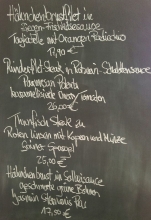 Hähnchenbrustfilet in
Tagliatelle mit Orangen Radicchio
17,90 €
Rinderfilet Steak in Rotwein Schalottensauce
Parmesan Polenta
karamellisierte Cherry Tomaten
26,00 €
Thunfisch Steak an
Roten Linsen mit Kapern und Minze
Grüner Spargel
25,00 €
Hähnchenbrust in
geschmorte grüne Bohnen
Jasmin
17,90 €